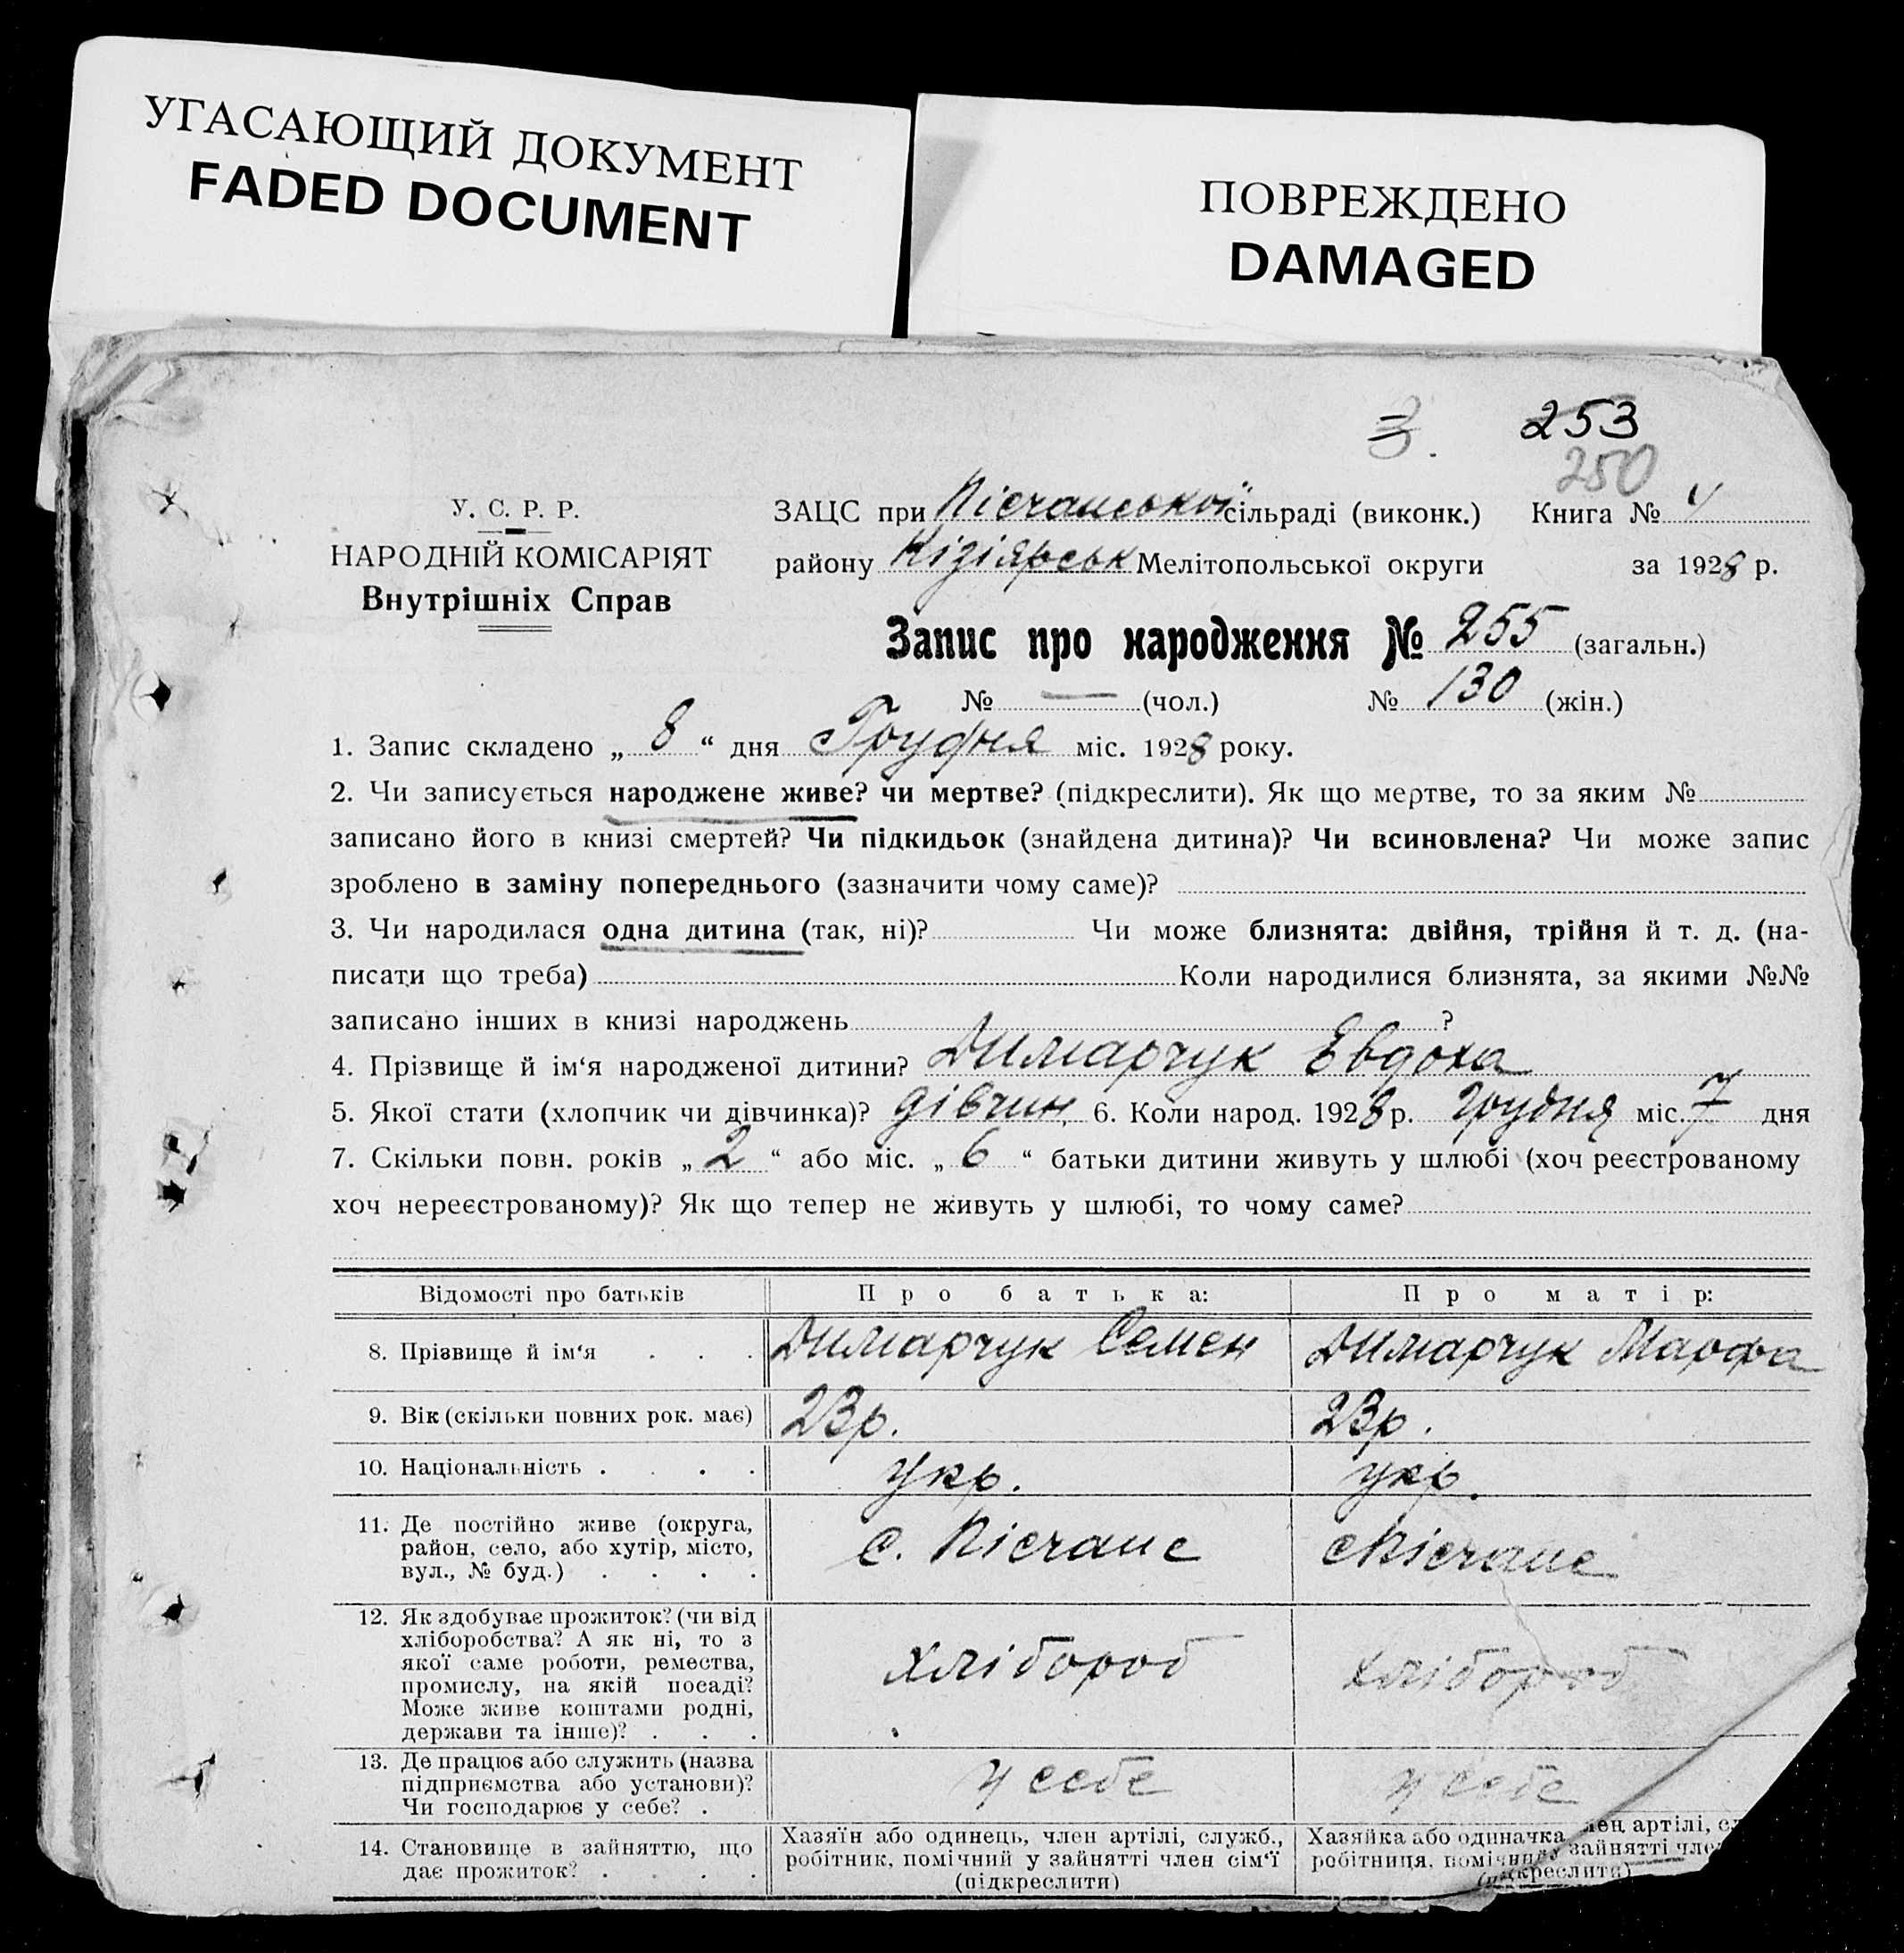 УГАСАЮЩИЙ ДОКУМЕНТ
FADED DOCUMENT
ПОВРЕЖДЕНО
DAMAGED
3.
253
250
У. С. Р. Р.
НАРОДНІЙ КОМІСАРІЯТ
Внутрішніх Справ
ЗАЦС при Пісчанської сільраді (виконк.) Книга № 4
району Кізіярськ Мелітопольської округи за 1928 р.
Запис про народження № 255 (загальн.)
№ — (чол.) № 130 (жін.)
1. Запис складено „ 8 “ дня Грудня міс. 1928 року.
2. Чи записується народжене живе? чи мертве? (підкреслити). Як що мертве, то за яким №
записано його в книзі смертей? Чи підкидьок (знайдена дитина)? Чи всиновлена? Чи може запис
зроблено в заміну попереднього (зазначити чому саме)?
3. Чи народилася одна дитина (так, ні)? Чи може близнята: двійня, трійня й т. д. (на-
писати що треба) Коли народилися близнята, за якими №№
записано інших в книзі народжень ?
4. Прізвище й ім‘я народженої дитини? Димарчук Евдоха
5. Якої стати (хлопчик чи дівчинка)? дівчин. 6. Коли народ. 1928 р. Грудня міс. 7 дня
7. Скільки повн. років „ 2 “ або міс. „ 6 “ батьки дитини живуть у шлюбі (хоч реєстрованому
хоч нереєстрованому)? Як що тепер не живуть у шлюбі, то чому саме?
Відомості про батьків Про батька: Про матір:
8. Прізвище й ім‘я . . . Димарчук Семен Димарчук Марфа
9. Вік (скільки повних рок. має) 23р. 23р.
10. Національність . . . . укр. укр.
11. Де постійно живе (округа,
район, село, або хутір, місто,
вул., № буд.) . . . .
с. Пісчане с Пісчане
12. Як здобуває прожиток? (чи від
хліборобства? А як ні, то з
якої саме роботи, ремества,
промислу, на якій посаді?
Може живе коштами родні,
держави та інше)? . . .
хлібороб хлібороб
13. Де працює або служить (назва
підприємства або установи)?
Чи господарює у себе? .
у себе у себе
14. Становище в зайняттю, що
дає прожиток? . . . .
Хазяїн або одинець, член артілі, служб.,
робітник, помічний у зайнятті член сім‘ї
(підкреслити)
Хазяйка або одиначка, член артілі,
робітниця, помічний у зайнятті
(підкреслити)